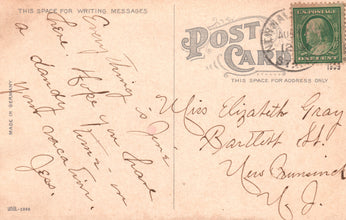 THIS SPACE FOR WRITING MESSAGES
POST
CARD
THIS SPACE FOR ADDRESS ONLY
MADE IN GERMANY.
Everything is fine
here. Hope you have
a dandy time on
your vacation.
Jess.
Miss Elizabeth Gray
Bartlett St.
New Brunswick
N. J.
U.S. POSTAGE
ONE CENT